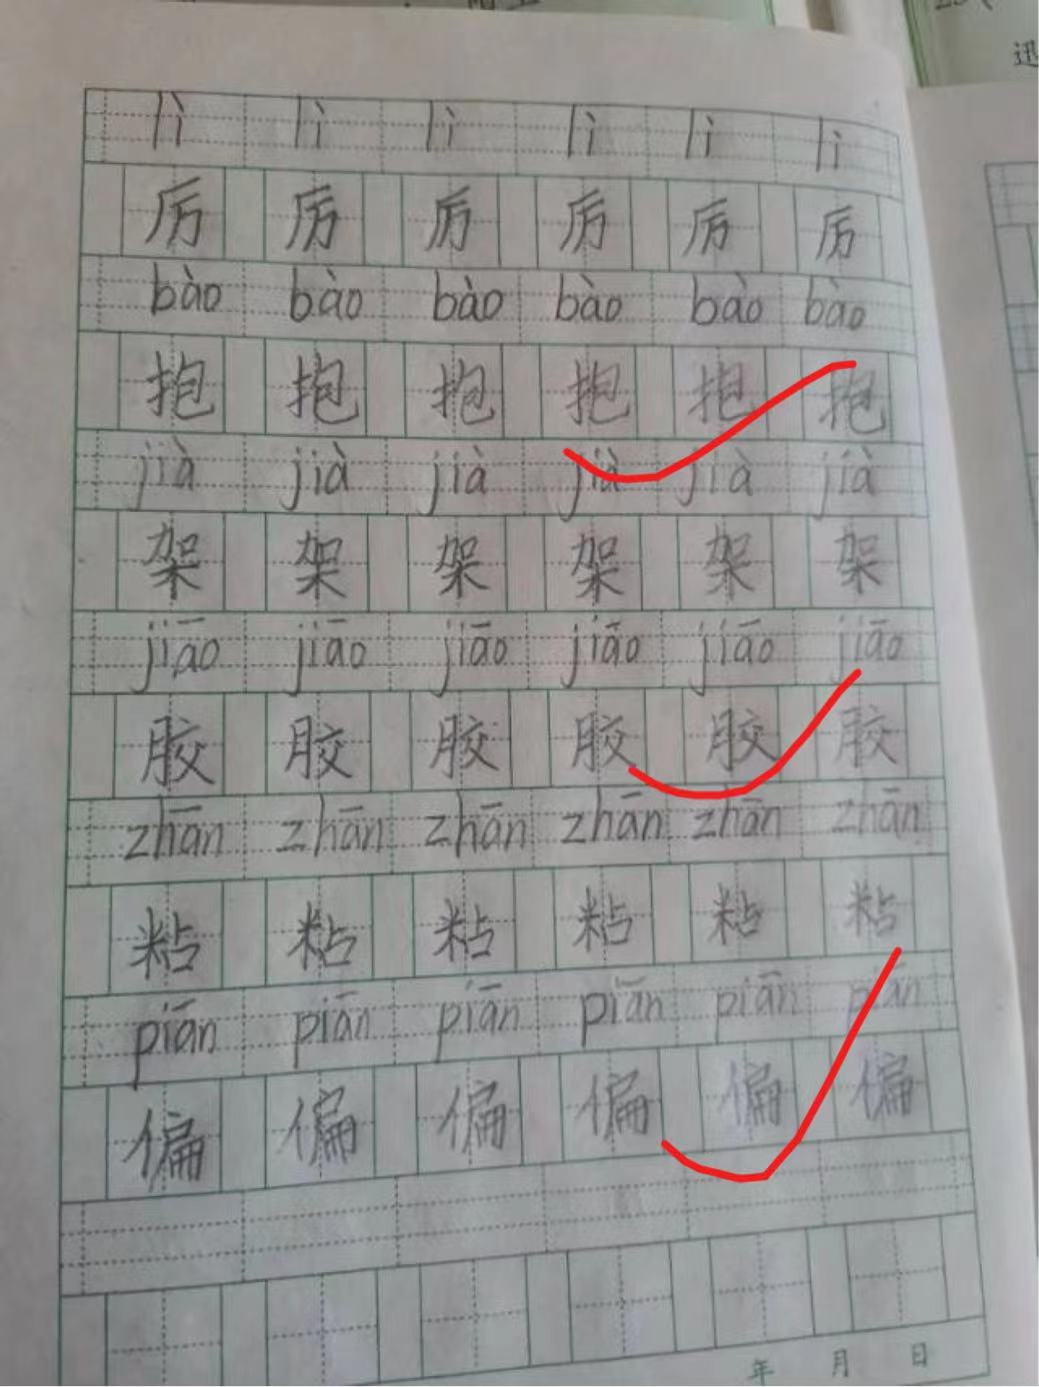 lì lì lì lì lì lì
厉 厉 厉 厉 厉 厉
bào bào bào bào bào bào
抱 抱 抱 抱 抱 抱
jià jià jià jià jià jià
架 架 架 架 架 架
jiāo jiāo jiāo jiāo jiāo jiāo
胶 胶 胶 胶 胶 胶
zhān zhān zhān zhān zhān zhān
粘 粘 粘 粘 粘 粘
piān piān piān piān piān piān
偏 偏 偏 偏 偏 偏
年 月 日
迅